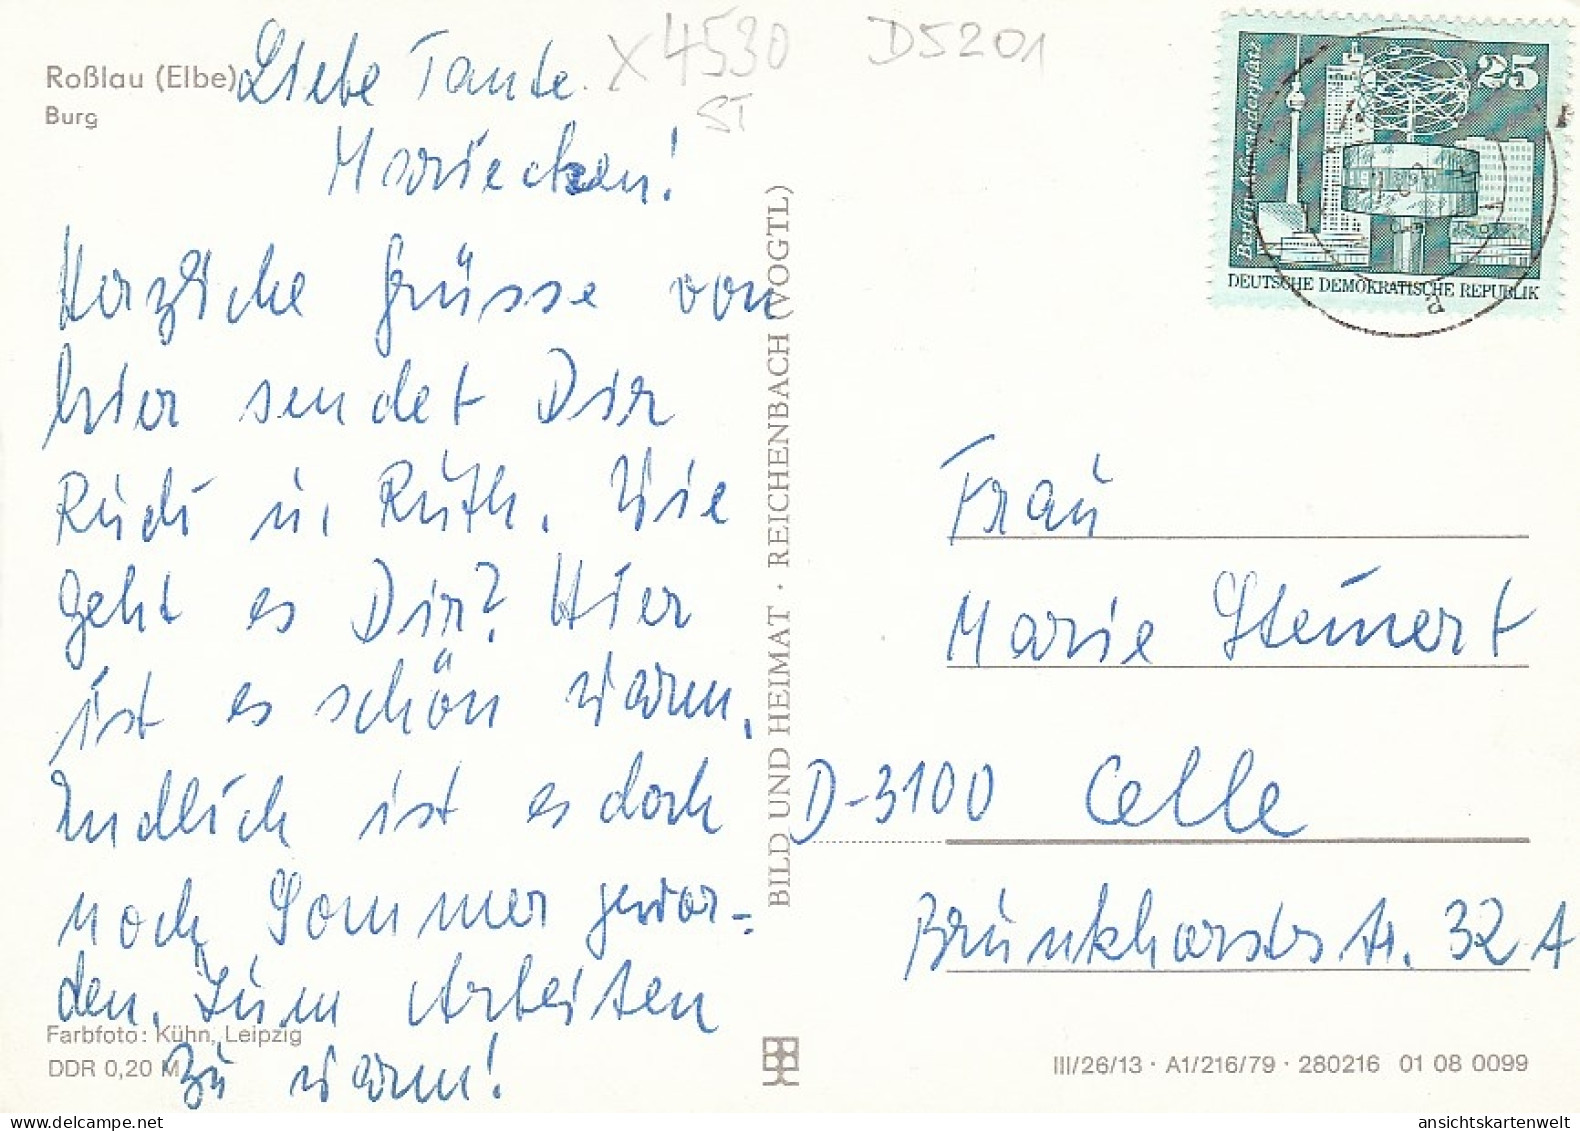 Roßlau (Elbe)
Burg
Liebe Tante
Mariechen!
Herzliche Grüsse von
hier sendet Dir
Rudi u. Ruth. Wie
geht es Dir? Hier
ist es schön warm.
Endlich ist es doch
noch Sommer gewor-
den. Zum Arbeiten
zu warm!
Farbfoto: Kühn, Leipzig
DDR 0,20 M
X4530
ST
D5201
BILD UND HEIMAT · REICHENBACH (VOGTL)
Berlin-Alexanderplatz
25
DEUTSCHE DEMOKRATISCHE REPUBLIK
a
Frau
Marie Steinert
D-3100 Celle
Brunkhorststr. 32 A
III/26/13 · A1/216/79 · 280216 01 08 0099
ansichtskartenwelt